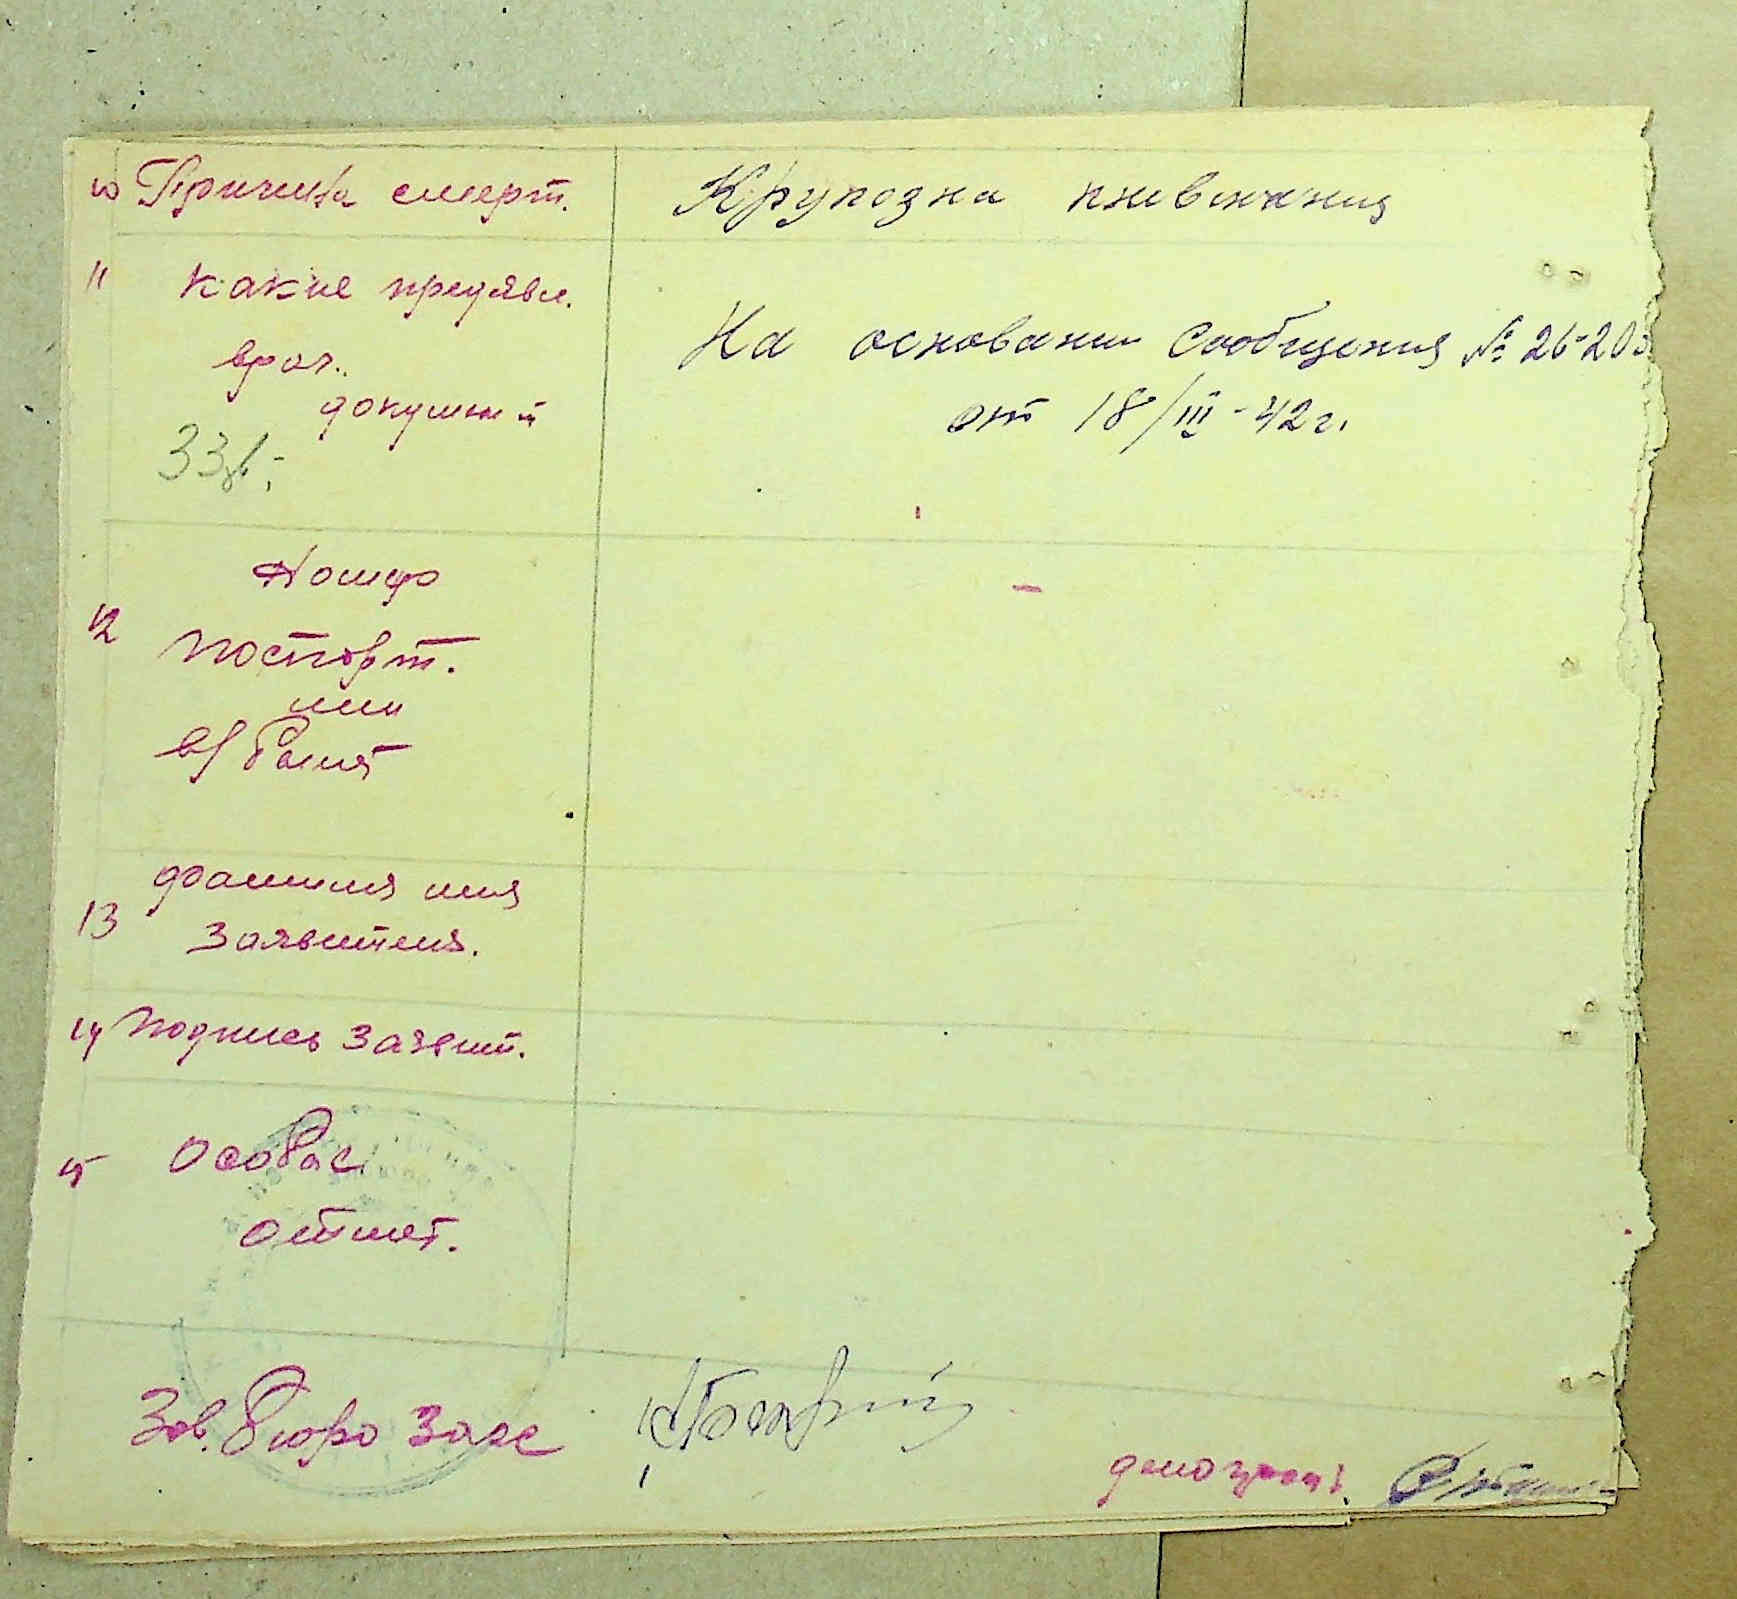 10 Причина смерт. Крупозна пневмания
11 Какие предявл.
врач.
документ
На основании Сообщения № 26-203
от 18/III-42 г.
12 Номер
паспорт.
или
в/билет
13 фамилия имя
заявителя.
14 Подпись заявит.
15 Особые
отмет.
Зав. бюро Загс
делопроиз.